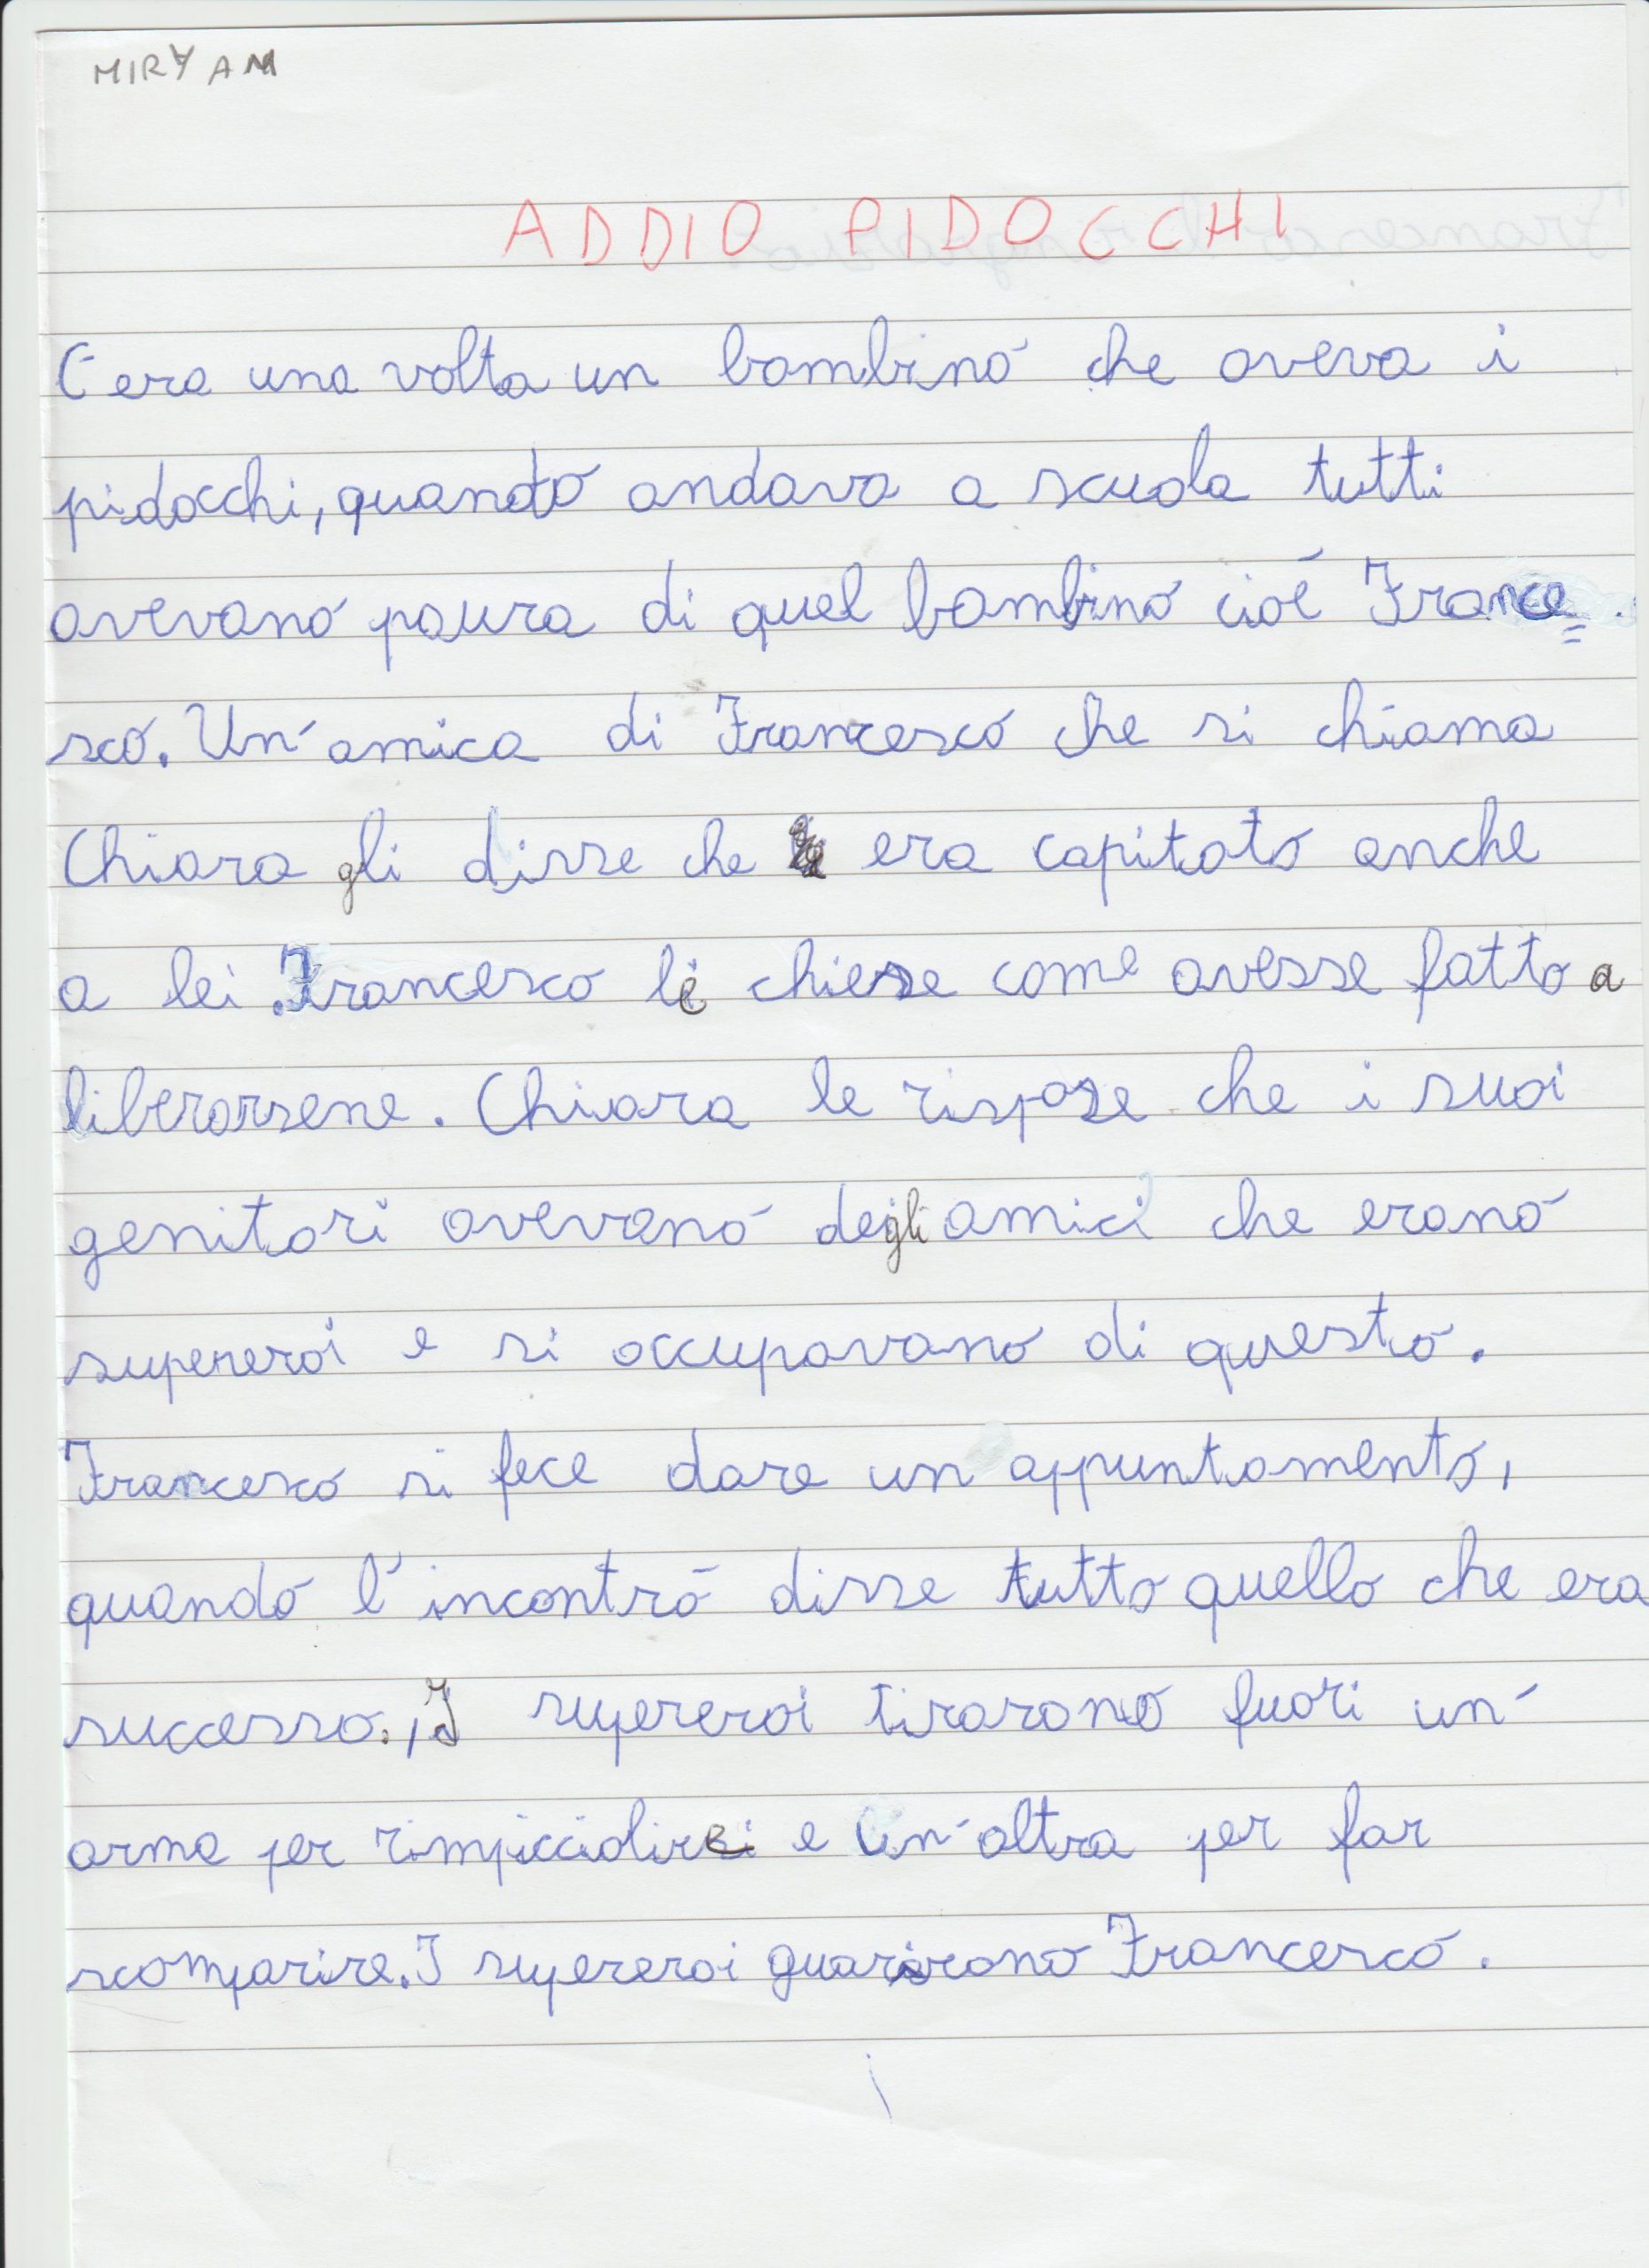 MIRYAM
ADDIO PIDOCCHI
C'era una volta un bambino che aveva i
pidocchi, quando andava a scuola tutti
avevano paura di quel bambino cioé France=
sco. Un'amica di Francesco che si chiama
Chiara gli disse che era capitato anche
a lei. Francesco le chiese come avesse fatto a
liberarsene. Chiara le rispose che i suoi
genitori avevano degli amici che erano
supereroi e si occupavano di questo.
Francesco si fece dare un appuntamento,
quando l'incontró disse tutto quello che era
successo., I supereroi tirarono fuori un'
arma per rimpicciolire e un'altra per far
scomparire. I supereroi guarirono Francesco.